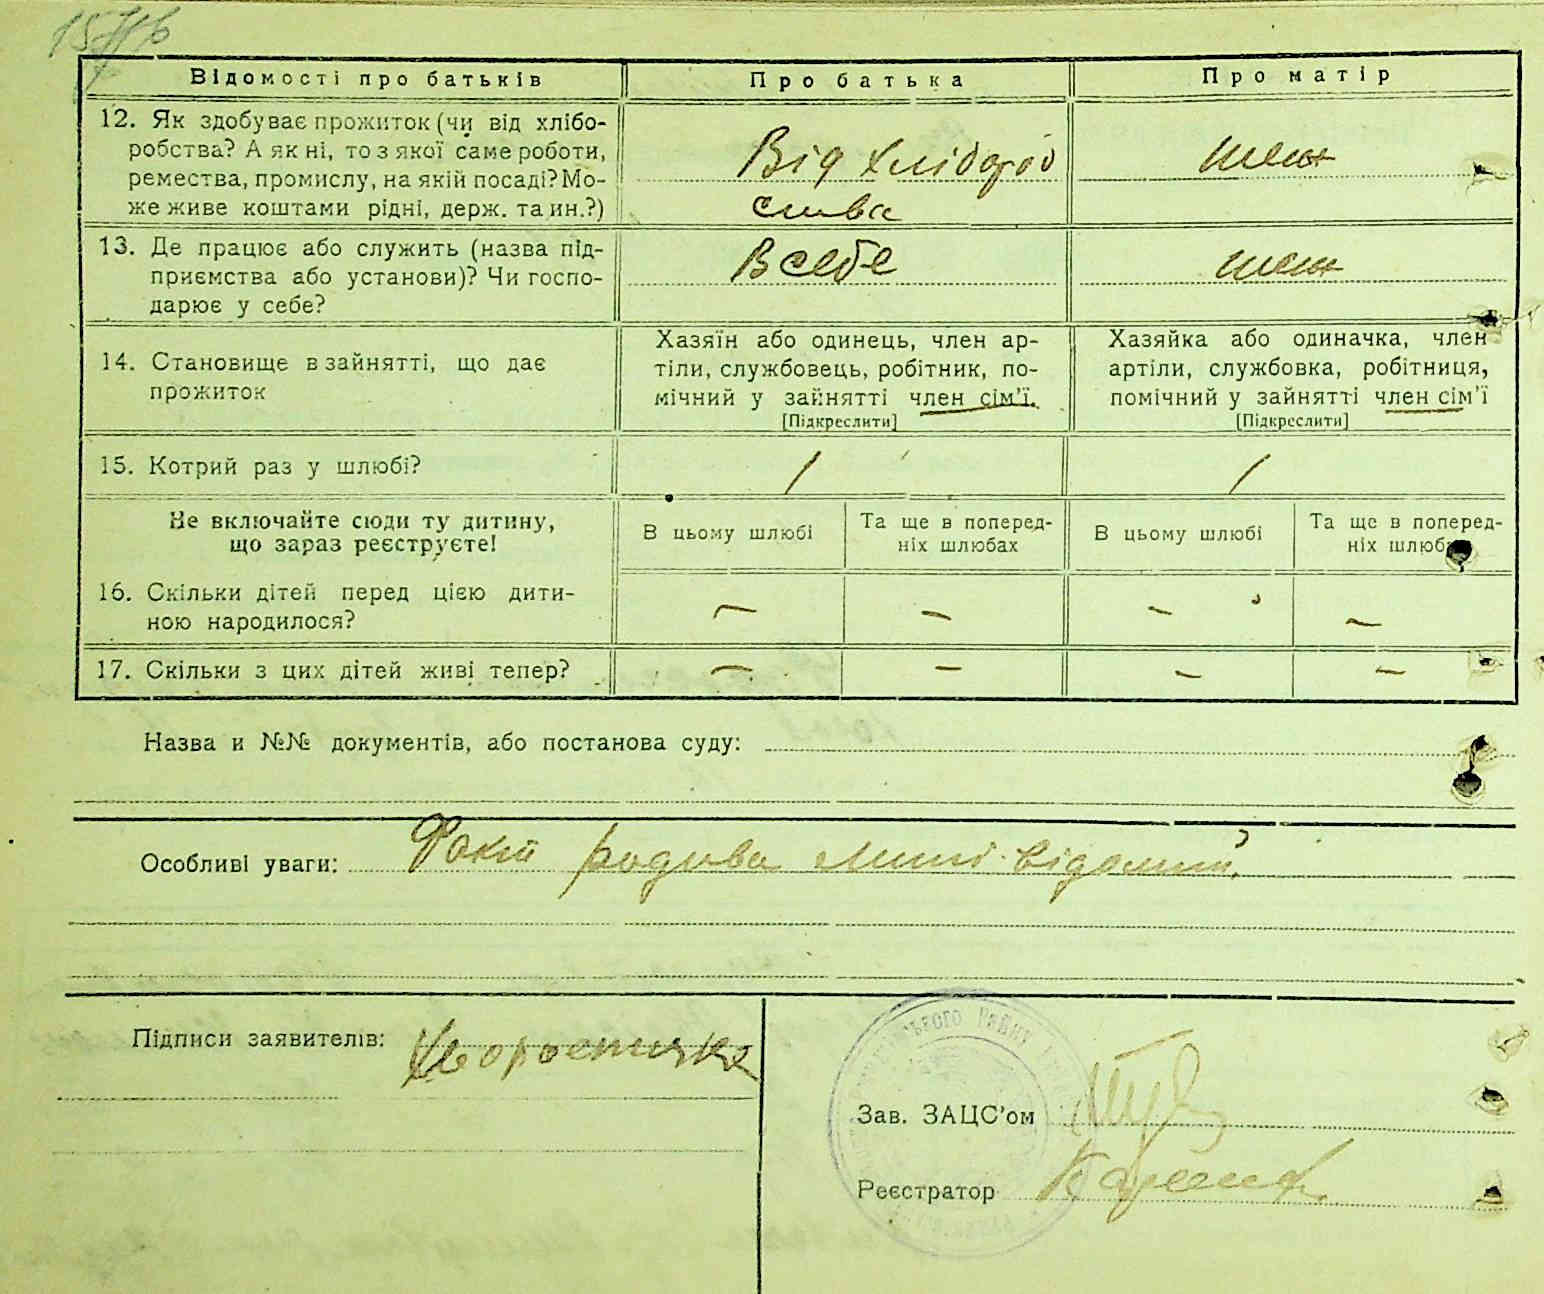 Відомості про батьків
Про батька
Про матір
12. Як здобуває прожиток (чи від хлібо-
робства? А як ні, то з якої саме роботи,
ремества, промислу, на якій посаді? Мо-
же живе коштами рідні, держ. та ин.?)
Від хлібороб
ства
13. Де працює або служить (назва під-
приємства або установи)? Чи госпо-
дарює у себе?
В себе
14. Становище в зайнятті, що дає
прожиток
Хазяїн або одинець, член ар-
тіли, службовець, робітник, по-
мічний у зайнятті член сім'ї.
[Підкреслити]
Хазяйка або одиначка, член
артіли, службовка, робітниця,
помічний у зайнятті член сім'ї
[Підкреслити]
15. Котрий раз у шлюбі?
1
1
Не включайте сюди ту дитину,
що зараз реєструєте!
В цьому шлюбі
Та ще в поперед-
ніх шлюбах
В цьому шлюбі
Та ще в поперед-
ніх шлюбах
16. Скільки дітей перед цією дити-
ною народилося?
— — — —
17. Скільки з цих дітей живі тепер?
— — — —
Назва и №№ документів, або постанова суду:
Особливі уваги: Факт родива мині відомий
Підписи заявителів:
Зав. ЗАЦС'ом
Реєстратор